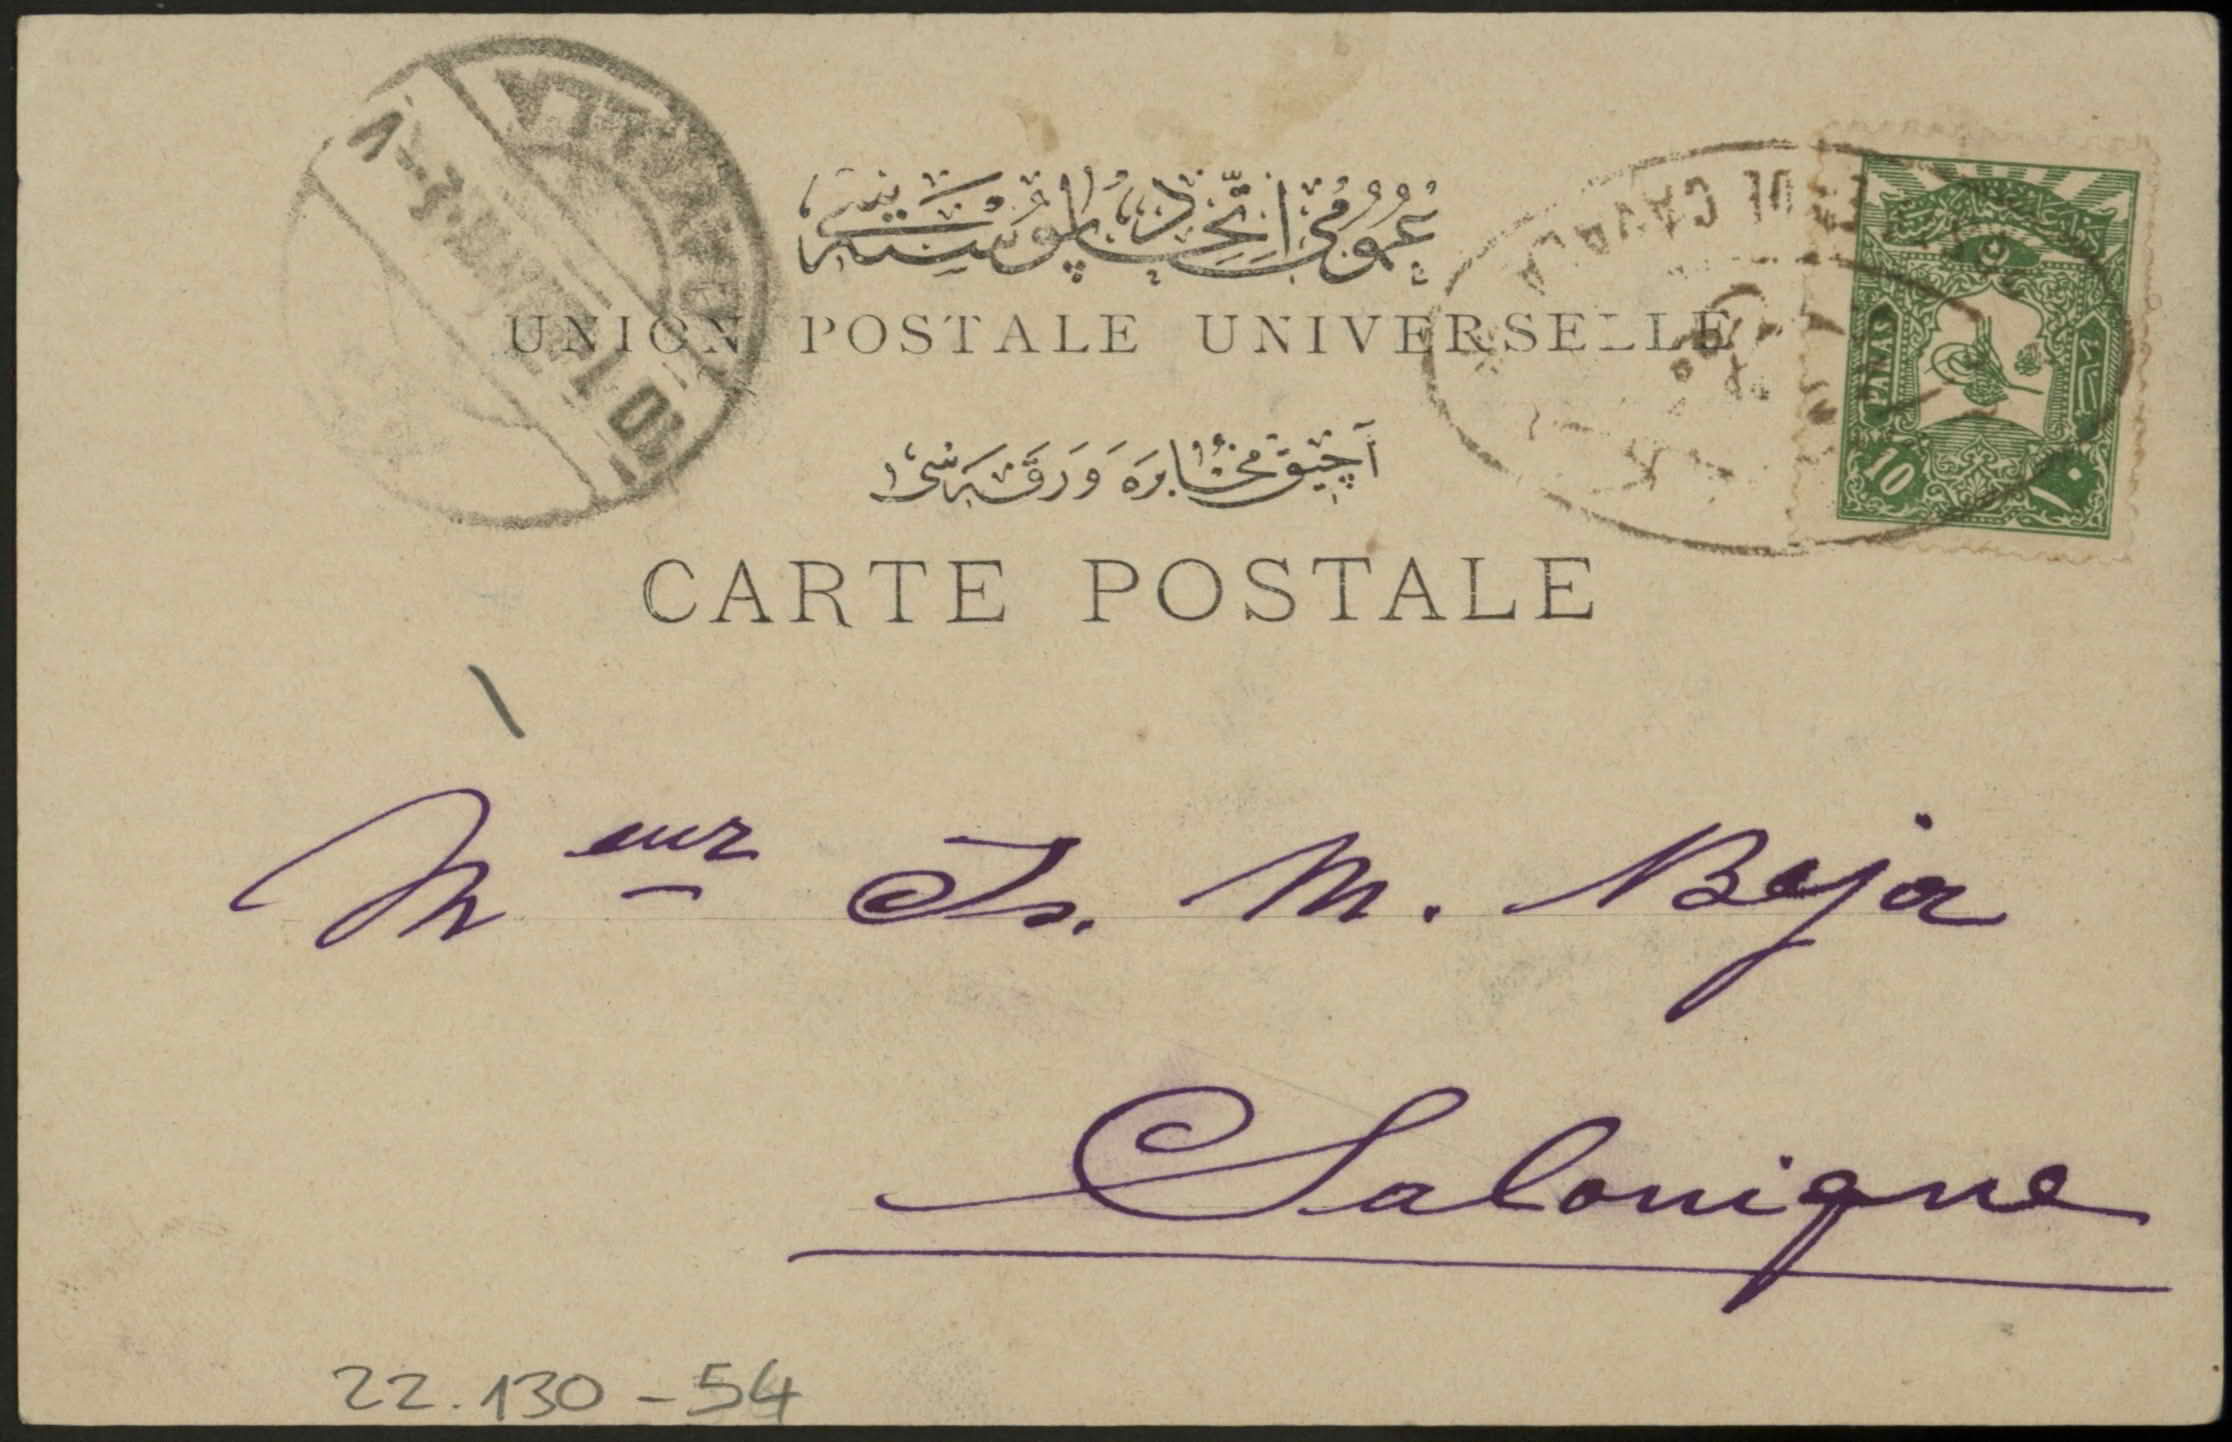 عمومی اتحاد پوسته سی
UNION POSTALE UNIVERSELLE
آچیق مخابره ورقه سی
CARTE POSTALE
PARAS
10
١٠
Meur Is. M. Beja
Salonique
22.130-54